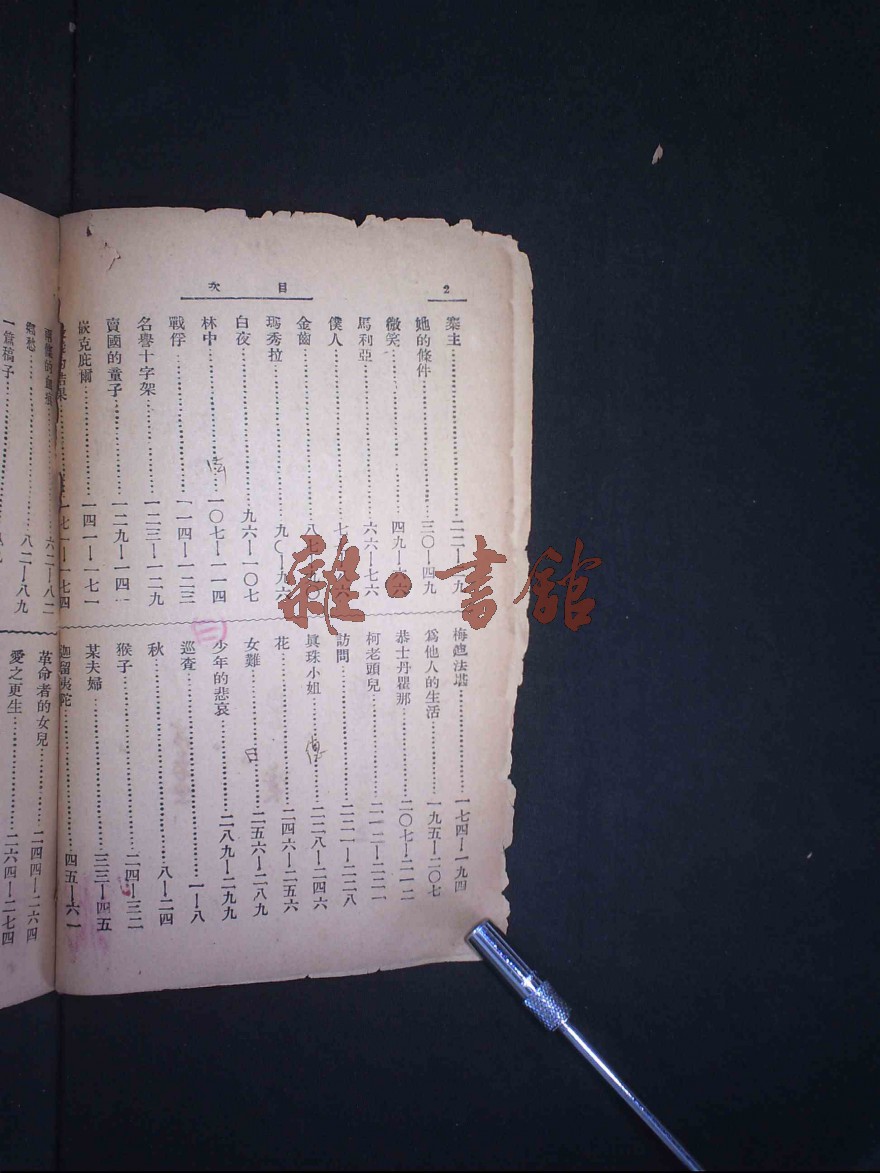 2
目次
棄主……二二—二九
她的條件……三〇—四九
微笑……四九—六六
馬利亞……六六—七六
僕人……七六—八六
金齒……八七—九〇
瑪秀拉……九〇—九六
白夜……九六—一〇七
林中……一〇七—一一四
戰俘……一一四—一二三
名譽十字架……一二三—一二九
賣國的童子……一二九—一四一
嵌克庇爾……一四一—一七一
一七一—一七四
梅毘法壜……一七四—一九四
爲他人的生活……一九五—二〇七
恭士丹瞿那……二〇七—二一二
柯老頭兒……二一二—二二一
訪問……二二一—二二八
眞珠小姐……二二八—二四六
花……二四六—二五六
女難……二五六—二八九
日
少年的悲哀……二八九—二九九
三
巡査……一—八
秋……八—二四
猴子……二四—三二
某夫婦……三三—四五
迦留夷陀……四五—六一
的血痕……六二—八二
鄉愁……八二—八九
一篇稿子……八九
革命者的女兒……二四四—二六四
愛之更生……二六四—二七四
雜·書館